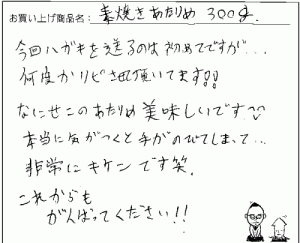 お買い上げ商品名：素焼きあたりめ 300g.
今回ハガキを送るのは初めてですが…
何度かリピさせて頂いてます!!
なにせこのあたりめ美味しいです
本当に気がつくと手がのびてしまって…
非常にキケンです笑.
これからも
がんばってください!!